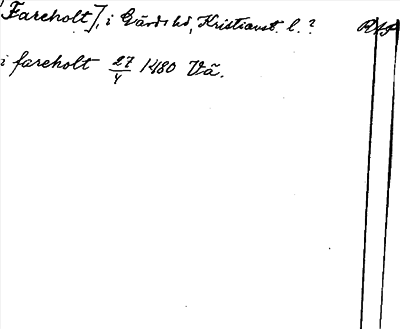 [Fareholt], i Gärds hd, Kristianst. l.? RAP
i fareholt 27/4 1480 Vä.